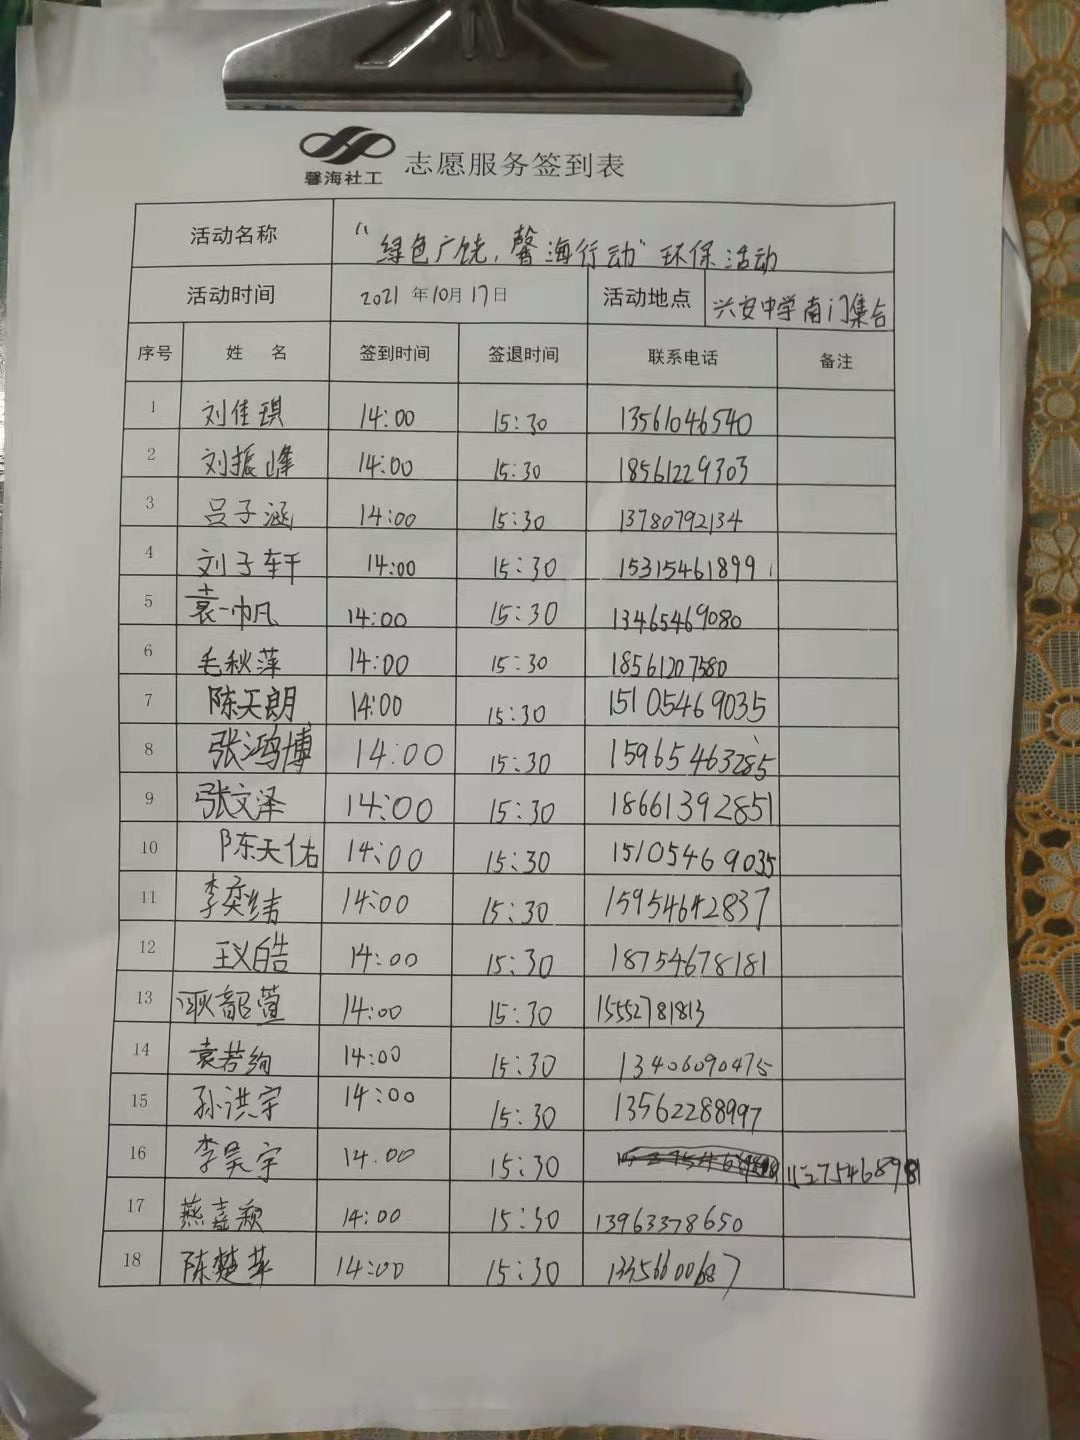 馨海社工 志愿服务签到表
活动名称 “绿色广饶，馨海行动”环保活动
活动时间 2021年10月17日 活动地点 兴安中学南门集合
序号 姓 名 签到时间 签退时间 联系电话 备注
1 刘佳琪 14:00 15:30 13561046540
2 刘振峰 14:00 15:30 18561229303
3 吕子涵 14:00 15:30 13780792134
4 刘子轩 14:00 15:30 15315461899
5 袁一帆 14:00 15:30 13465469080
6 毛秋萍 14:00 15:30 18561207580
7 陈天朗 14:00 15:30 15105469035
8 张鸿博 14:00 15:30 15965463285
9 张文泽 14:00 15:30 18661392851
10 陈天佑 14:00 15:30 15105469035
11 李奕结 14:00 15:30 15954642837
12 王义皓 14:00 15:30 18754678181
13 耿韶萱 14:00 15:30 15552781813
14 袁若绚 14:00 15:30 13406090475
15 孙洪宇 14:00 15:30 13562288997
16 李昊宇 14:00 15:30 15275468981
17 燕嘉颖 14:00 15:30 13963378650
18 陈楚苹 14:00 15:30